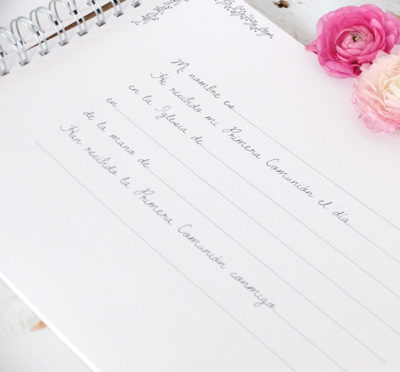 Mi nombre es
He recibido mi Primera Comunión el día
en la Iglesia de
en
de la mano de
Han recibido la Primera Comunión conmigo